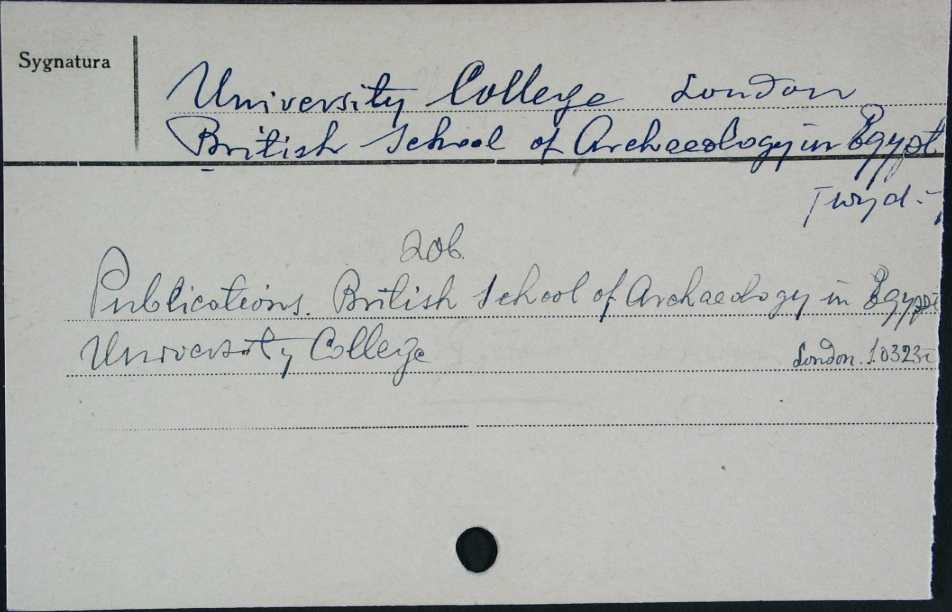 Sygnatura
University College London
British School of Archaeology in Egypt
[wyd.-
206.
Publications. British School of Archaeology in Egypt
University College
London.